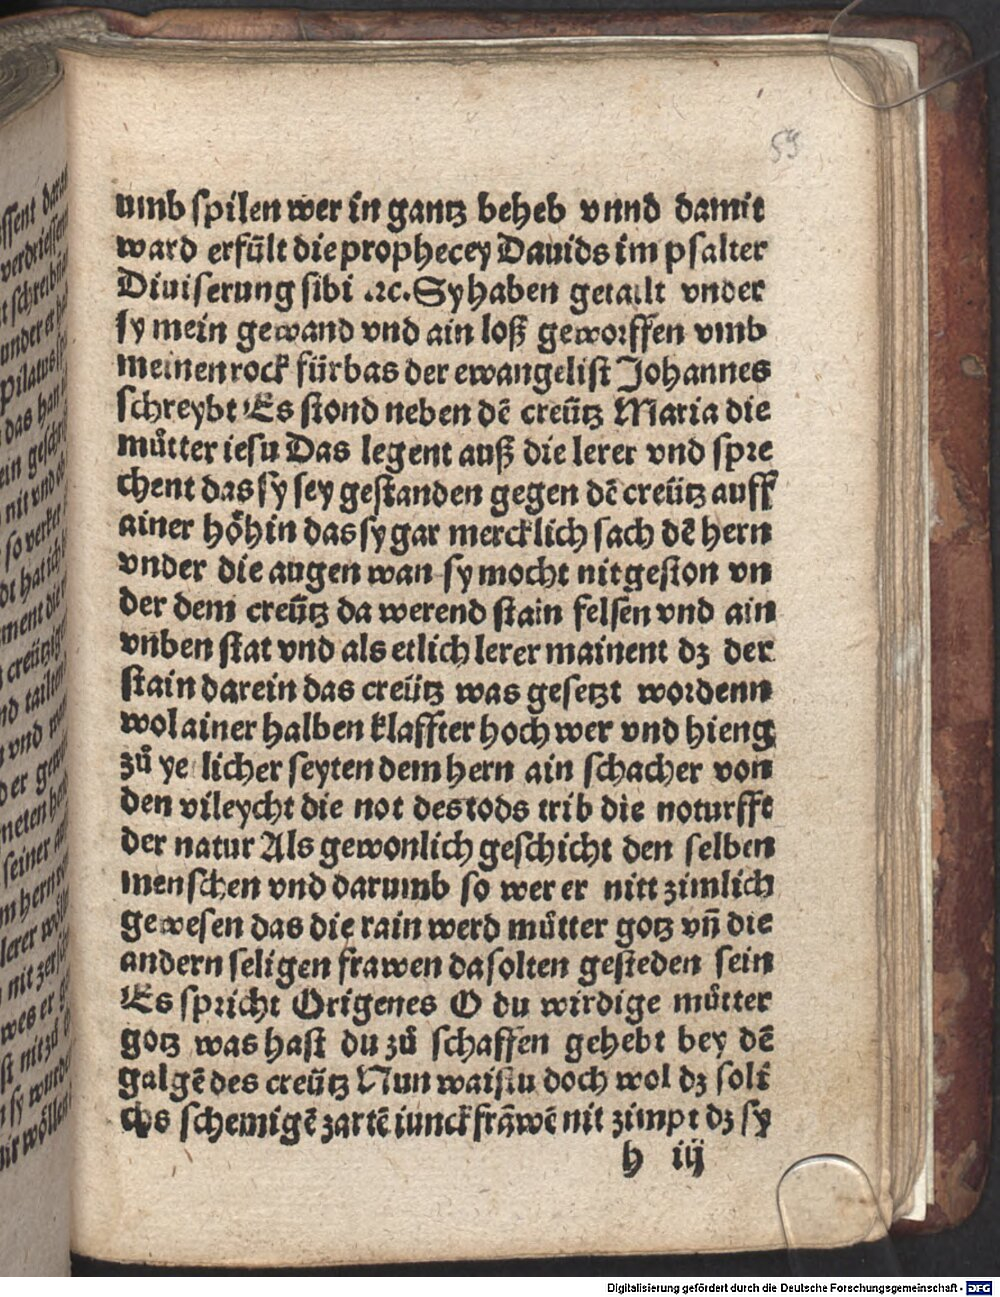 59
umb spilen wer in gantz beheb vnnd damit
ward erfült die prophecey Dauids im psalter
Diuiserung sibi ꝛc. Sy haben getailt vnder
sy mein gewand vnd ain loß geworffen vmb
meinen rock fürbas der ewangelist Johannes
schreybt Es stond neben dē creütz Maria die
můtter iesu Das legent auß die lerer vnd spre
chent das sy sey gestanden gegen dē creütz auff
ainer höhin das sy gar mercklich sach dē hern
vnder die augen wan sy mocht nit geston vn
der dem creütz da werend stain felsen vnd ain
vnben stat vnd als etlich lerer mainent dz der
stain darein das creütz was gesetzt wordenn
wol ainer halben klaffter hoch wer vnd hieng
zů ye licher seyten dem hern ain schacher von
den vileycht die not des tods trib die noturfft
der natur Als gewonlich geschicht den selben
menschen vnd darumb so wer er nitt zimlich
gewesen das die rain werd můtter gotz vn̄ die
andern seligen frawen da solten gesteden sein
Es spricht Origenes O du wirdige můtter
gotz was hast du zů schaffen gehebt bey dē
galgē des creütz Nun waistu doch wol dz soli
chs schemigē zartē iunckfrāwē nit zimpt dz sy
h iij
Digitalisierung gefördert durch die Deutsche Forschungsgemeinschaft - DFG